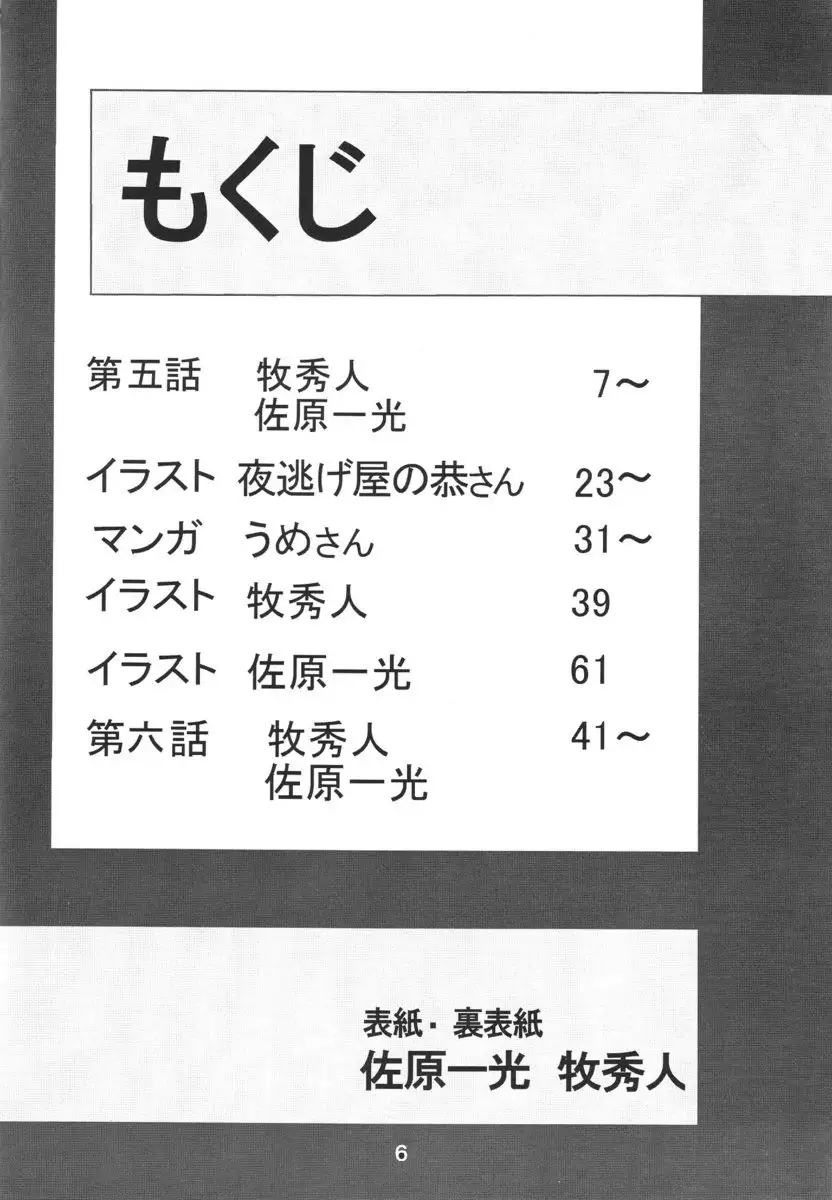 もくじ
第五話 牧秀人 7～
佐原一光
イラスト 夜逃げ屋の恭さん 23～
マンガ うめさん 31～
イラスト 牧秀人 39
イラスト 佐原一光 61
第六話 牧秀人 41～
佐原一光
表紙・裏表紙
佐原一光 牧秀人
6